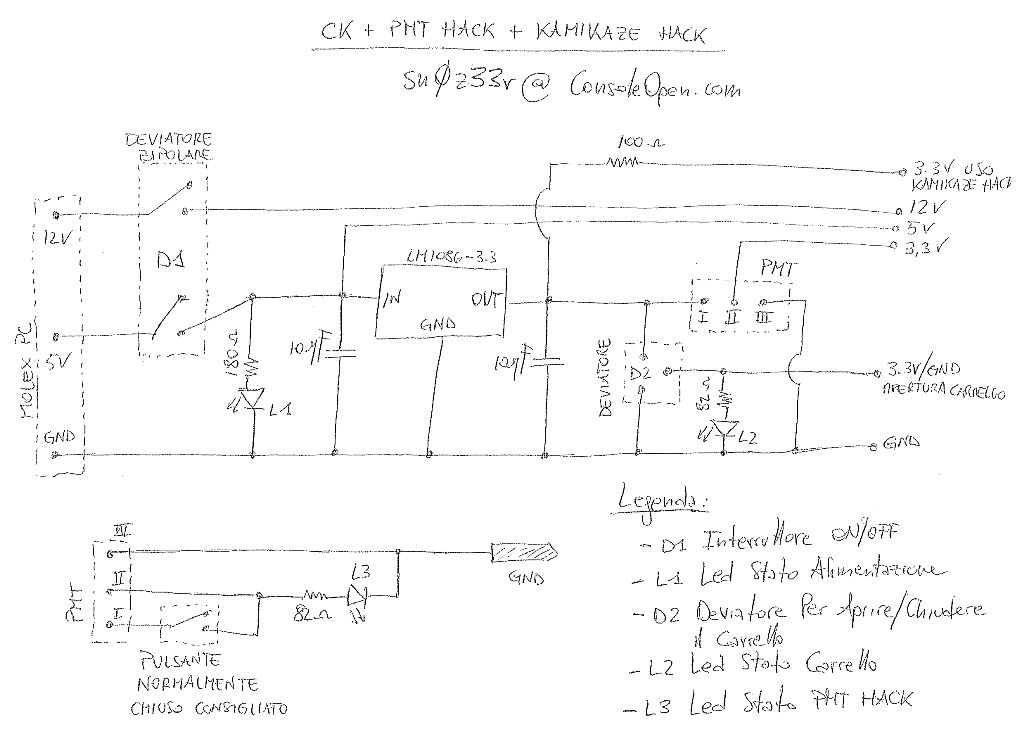 CK + PMT HACK + KAMIKAZE HACK
Sn0z33r@ ConsoleOpen.com
DEVIATORE
BIPOLARE
100 Ω
3.3V USO
KAMIKAZE HACK
12V
5V
3,3V
12V
D1
LM1086-3.3
IN
OUT
GND
PMT
I II III
MOLEX PC
5V
180Ω
10µF
10µF
DEVIATORE
D2
82Ω
3.3V/GND
APERTURA CARRELLO
L1
L2
GND
GND
Legenda:
- D1 Interruttore ON/OFF
- L1 Led Stato Alimentazione
- D2 Deviatore Per Aprire/Chiudere
il Carrello
- L2 Led Stato Carrello
- L3 Led Stato PMT HACK
PMT
III
II
I
82Ω
L3
GND
PULSANTE
NORMALMENTE
CHIUSO CONSIGLIATO